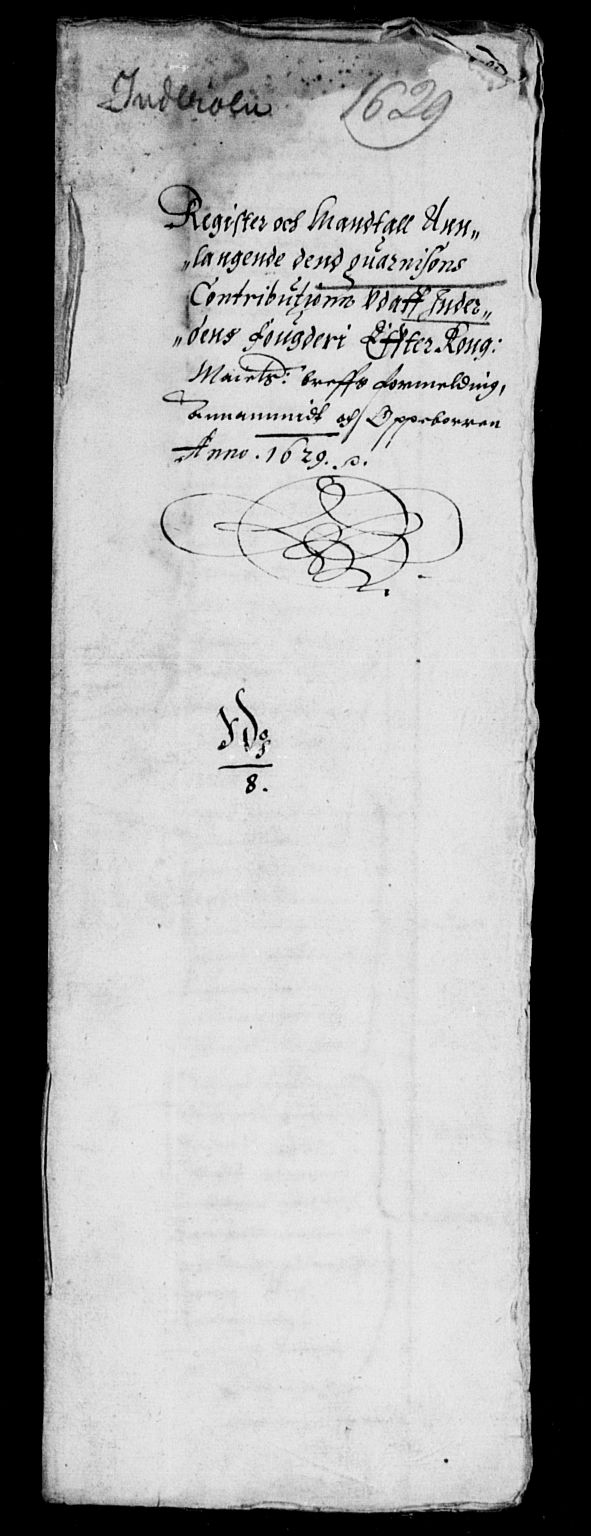 Inderøen 1629
Register och Mandtall Ann„
„langende dend quarnisons
Contributionn Vdaff Inder„
„öens fougderi Effter Kong:
Maietz: breffs formelding,
Annammidt och Oppeborren
Anno . 1629.
8.